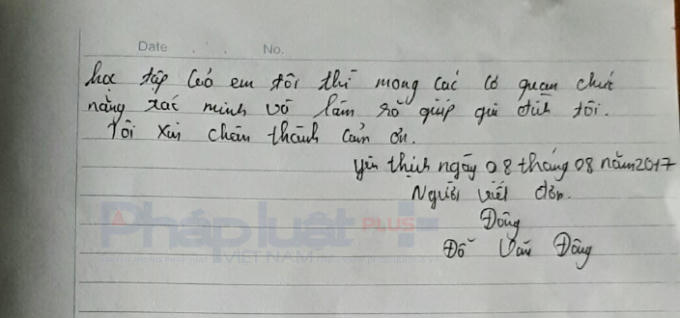 Date . . . No.
học tập của em tôi thì mong các cơ quan chức
năng xác minh và làm rõ giúp gia đình tôi.
Tôi xin chân thành cảm ơn.
Yên thịnh ngày 08 tháng 08 năm 2017
Người viết đơn.
Đông
Đỗ Văn Đông
Pháp luật PLUS
VIỆT NAM